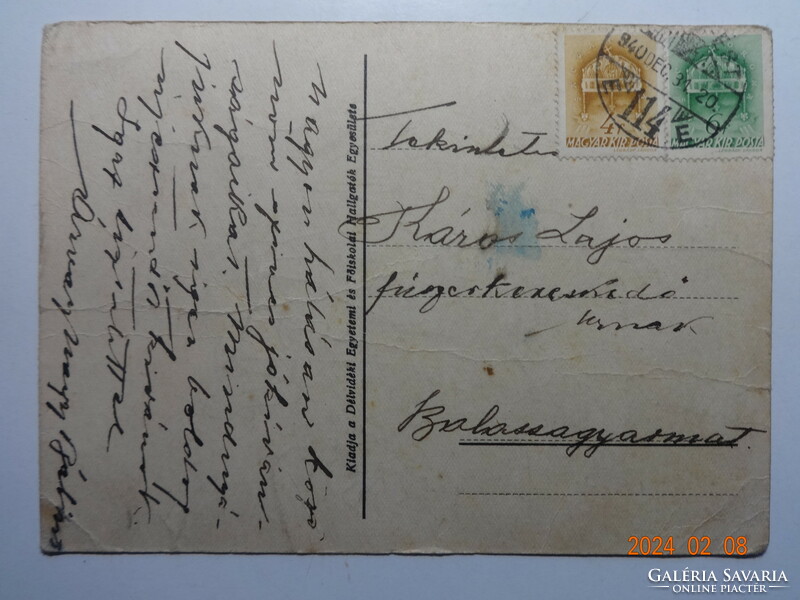 Nagyon hálásan kösz-
nöm szives jókíván-
ságaikat. Mindnyá-
juknak igen boldog
újesztendőt kívánok
Igaz tisztelettel
Nagy
Kiadja a Délvidéki Egyetemi és Főiskolai Hallgatók Egyesülete
940 DEC. 31. 20
114
MAGYAR KIR. POSTA
MAGYAR KIR. POSTA
Tekintetes
Káros Lajos
fűszerkereskedő
urnak
Balassagyarmat.
2024 02 08
GALÉRIA SAVARIA
ONLINE PIACTÉR